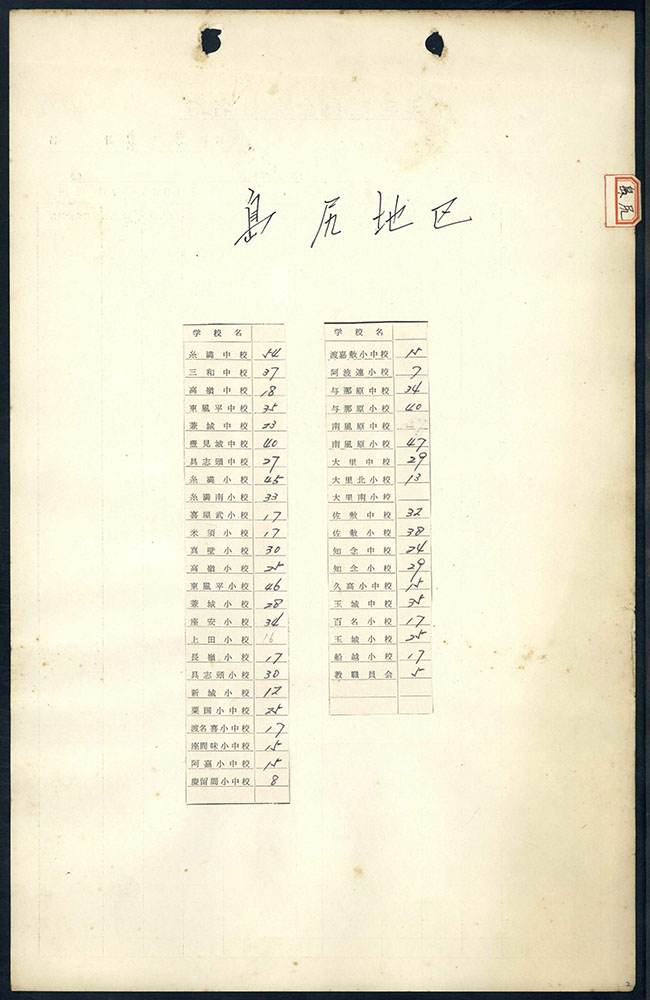 島尻地区
島尻
学校名
糸満中校 54
三和中校 37
高嶺中校 18
東風平中校 35
兼城中校 23
豊見城中校 40
具志頭中校 27
糸満小校 45
糸満南小校 33
喜屋武小校 17
米須小校 17
真壁小校 30
高嶺小校 25
東風平小校 46
兼城小校 28
座安小校 34
上田小校 16
長嶺小校 17
具志頭小校 30
新城小校 12
粟国小中校 25
渡名喜小中校 17
座間味小中校 15
阿嘉小中校 15
慶留間小中校 8
学校名
渡嘉敷小中校 15
阿波連小校 7
与那原中校 34
与那原小校 40
南風原中校
南風原小校 47
大里中校 29
大里北小校 13
大里南小校
佐敷中校 32
佐敷小校 38
知念中校 24
知念小校 29
久高小中校 15
玉城中校 35
百名小校 17
玉城小校 25
船越小校 17
教職員会 5